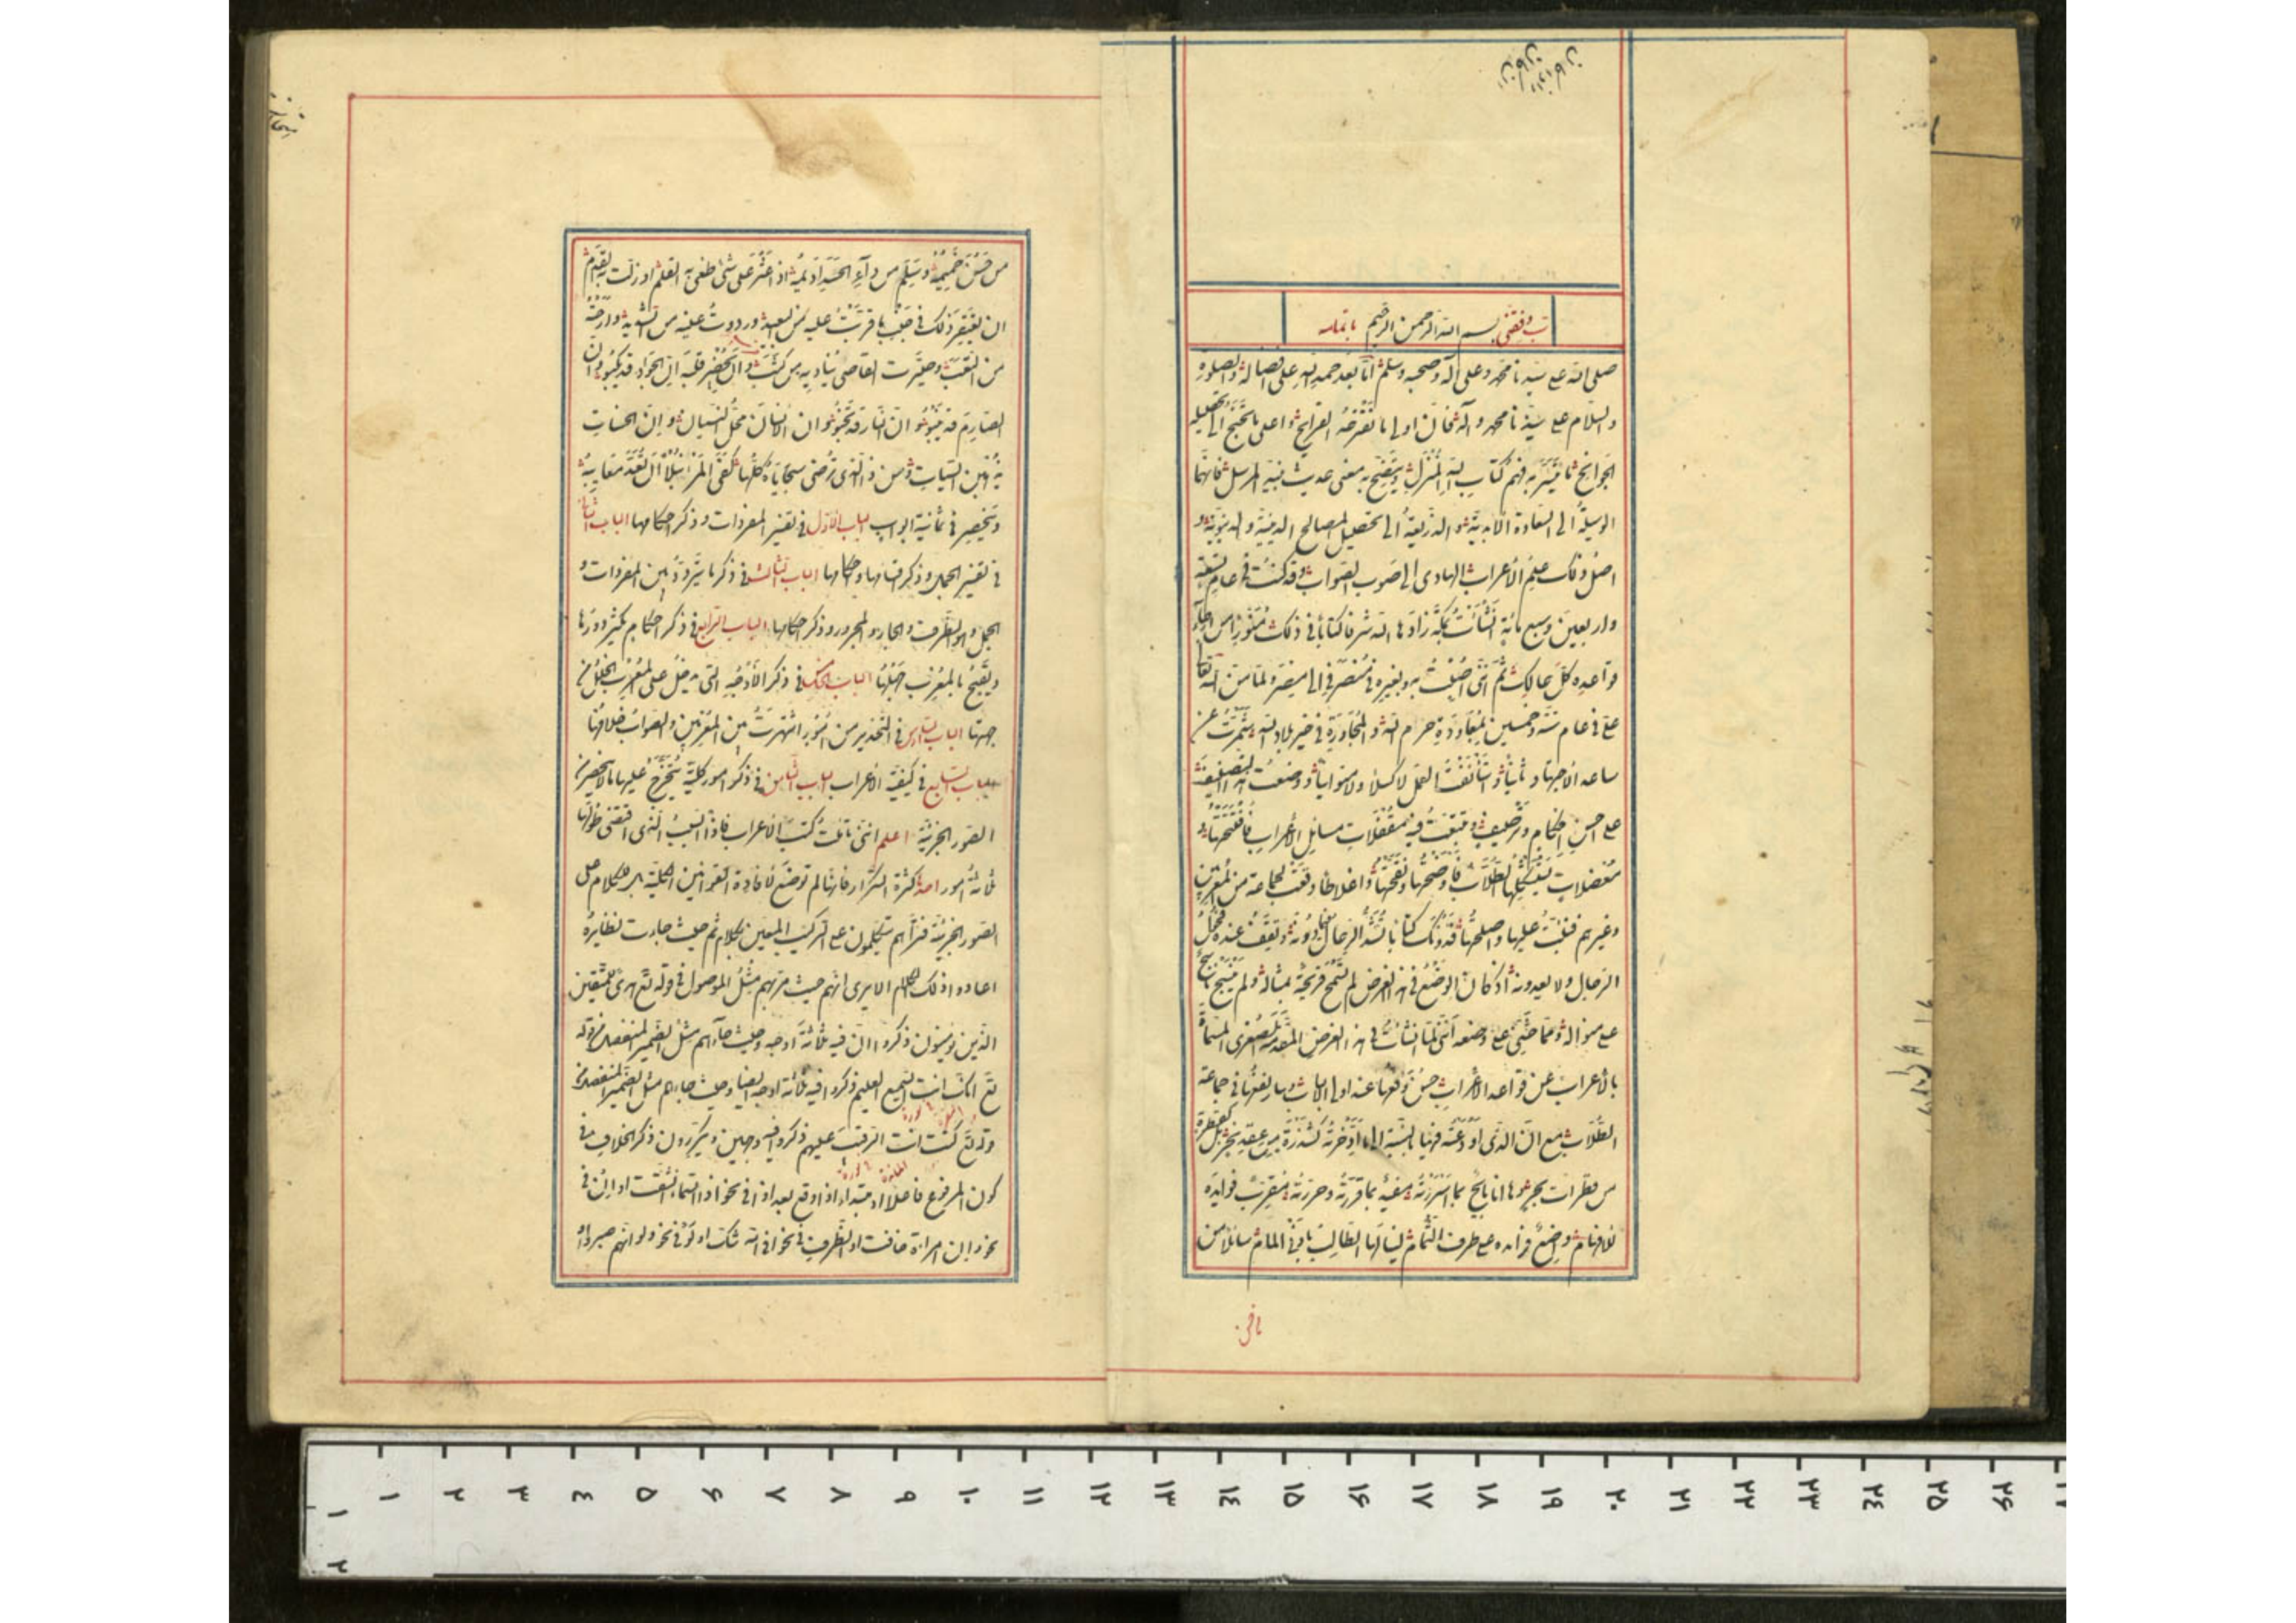 رب وفقنی بسم الله الرحمن الرحیم باتمامه
صلی الله علی سیدنا محمد وعلی آله وصحبه وسلم اما بعد حمد الله علی افضاله والصلوة
والسلام علی سیدنا محمد وآله فان اولی ما تقترحه القرایح واعلی ما تجنح الی تحصیله
الجوانح ما یتیسر به فهم کتاب الله المنزل ویتضح به معنی حدیث نبیه المرسل فانهما
الوسیلة الی السعادة الابدیة والذریعة الی تحصیل المصالح الدینیة والدنیویة و
اصل ذلک علم الاعراب الهادی الی صوب الصواب وقد کنت فی عام تسعة
واربعین وسبع مائة انشأت بمکة زادها الله شرفا کتابا فی ذلک منورا من ارجاء
قواعده کل حالک ثم اننی اصبت به وبغیره فی منصرفی الی مصر ولما من الله تعالی
علی فی عام ستة وخمسین بمعاودة حرم الله والمجاورة فی خیر بلاد الله شمرت عن
ساعد الاجتهاد ثانیا واستأنفت العمل لا کسلا ولا متوانیا ووضعت هذا التصنیف
علی احسن احکام وترصیف وتتبعت فیه مقفلات مسایل الاعراب فافتتحتها و
معضلات یستشکلها الطلاب فاوضحتها ونقحتها واغلاطا وقعت لجماعة من المعربین
وغیرهم فنبهت علیها واصلحتها فدونک کتابا تشد الرحال فیما دونه وتقف عنده فحول
الرجال ولا یعدونه اذ کان الوضع فی هذا الغرض لم تسمح قریحة بمثاله ولم ینسج ناسج
علی منواله ومما حثنی علی وضعه اننی لما انشأت فی هذا الغرض المقدمة الصغری المسماة
بالاعراب عن قواعد الاعراب حسن وقعها عند اولی الالباب وسار نفعها فی جماعة
الطلاب مع ان الذی اودعته فیها بالنسبة الی ما ادخرته کشذرة من عقد نحر بل کقطرة
من قطرات بحر وها انا بائح بما اسررته مفید بما قررته وحررته مقرب فوایده
للافهام واضع فرائده علی طرف الثمام لینالها الطالب بادنی المام سائلا من
من حسن خیمه وسلم من داء الحسد ادیمه اذا عثر علی شیء طغی به القلم او زلت به القدم
ان یغتفر ذلک فی جنب ما قربت علیه من البعید ورددت علیه من الشرید وارحته
من التعب وصیرت القاصی ینادیه من کثب وان یحضر قلبه ان الجواد قد یکبو وان
الصارم قد ینبو وان النار قد تخبو وان الانسان محل النسیان وان الحسنات
یذهبن السیئات ومن ذا الذی ترضی سجایاه کلها کفی المرء نبلا ان تعد معایبه
وینحصر فی ثمانیة ابواب الباب الاول فی تفسیر المفردات وذکر احکامها الباب الثانی
فی تفسیر الجمل وذکر اقسامها واحکامها الباب الثالث فی ذکر ما یتردد بین المفردات و
الجمل وهو الظرف والجار والمجرور وذکر احکامها الباب الرابع فی ذکر احکام یکثر دورها
ویقبح بالمعرب جهلها الباب الخامس فی ذکر الاوجه التی یدخل علی المعرب الخلل من
جهتها الباب السادس فی التحذیر من امور اشتهرت بین المعربین والصواب خلافها
الباب السابع فی کیفیة الاعراب الباب الثامن فی ذکر امور کلیة یتخرج علیها ما لا ینحصر من
الصور الجزئیة اعلم اننی تاملت کتب الاعراب فاذا السبب الذی اقتضی طولها
ثلاثة امور احدها کثرة التکرار فانها لم توضع لافادة القوانین الکلیة بل للکلام علی
الصور الجزئیة فتراهم یتکلمون علی الترکیب المعین بکلام ثم حیث جاءت نظایره
اعادوا ذلک الکلام الا یری انهم حیث مر بهم مثل الموصول فی قوله تع هدی للمتقین
الذین یؤمنون ذکروا ان فیه ثلاثة اوجه وحیث جاءهم مثل الضمیر المنفصل فی قوله
تع انک انت السمیع العلیم ذکروا فیه ثلاثة اوجه ایضا وحیث جاءهم مثل الضمیر المنفصل فی
قوله تع کنت انت الرقیب علیهم ذکروا فیه وجهین ویکررون ذکر الخلاف فی
کون المرفوع فاعلا او مبتداء اذا وقع بعد اذا فی نحو اذا السماء انشقت او ان فی
نحو وان امراة خافت او الظرف فی نحو افی الله شک او لو فی نحو ولو انهم صبروا
بافی